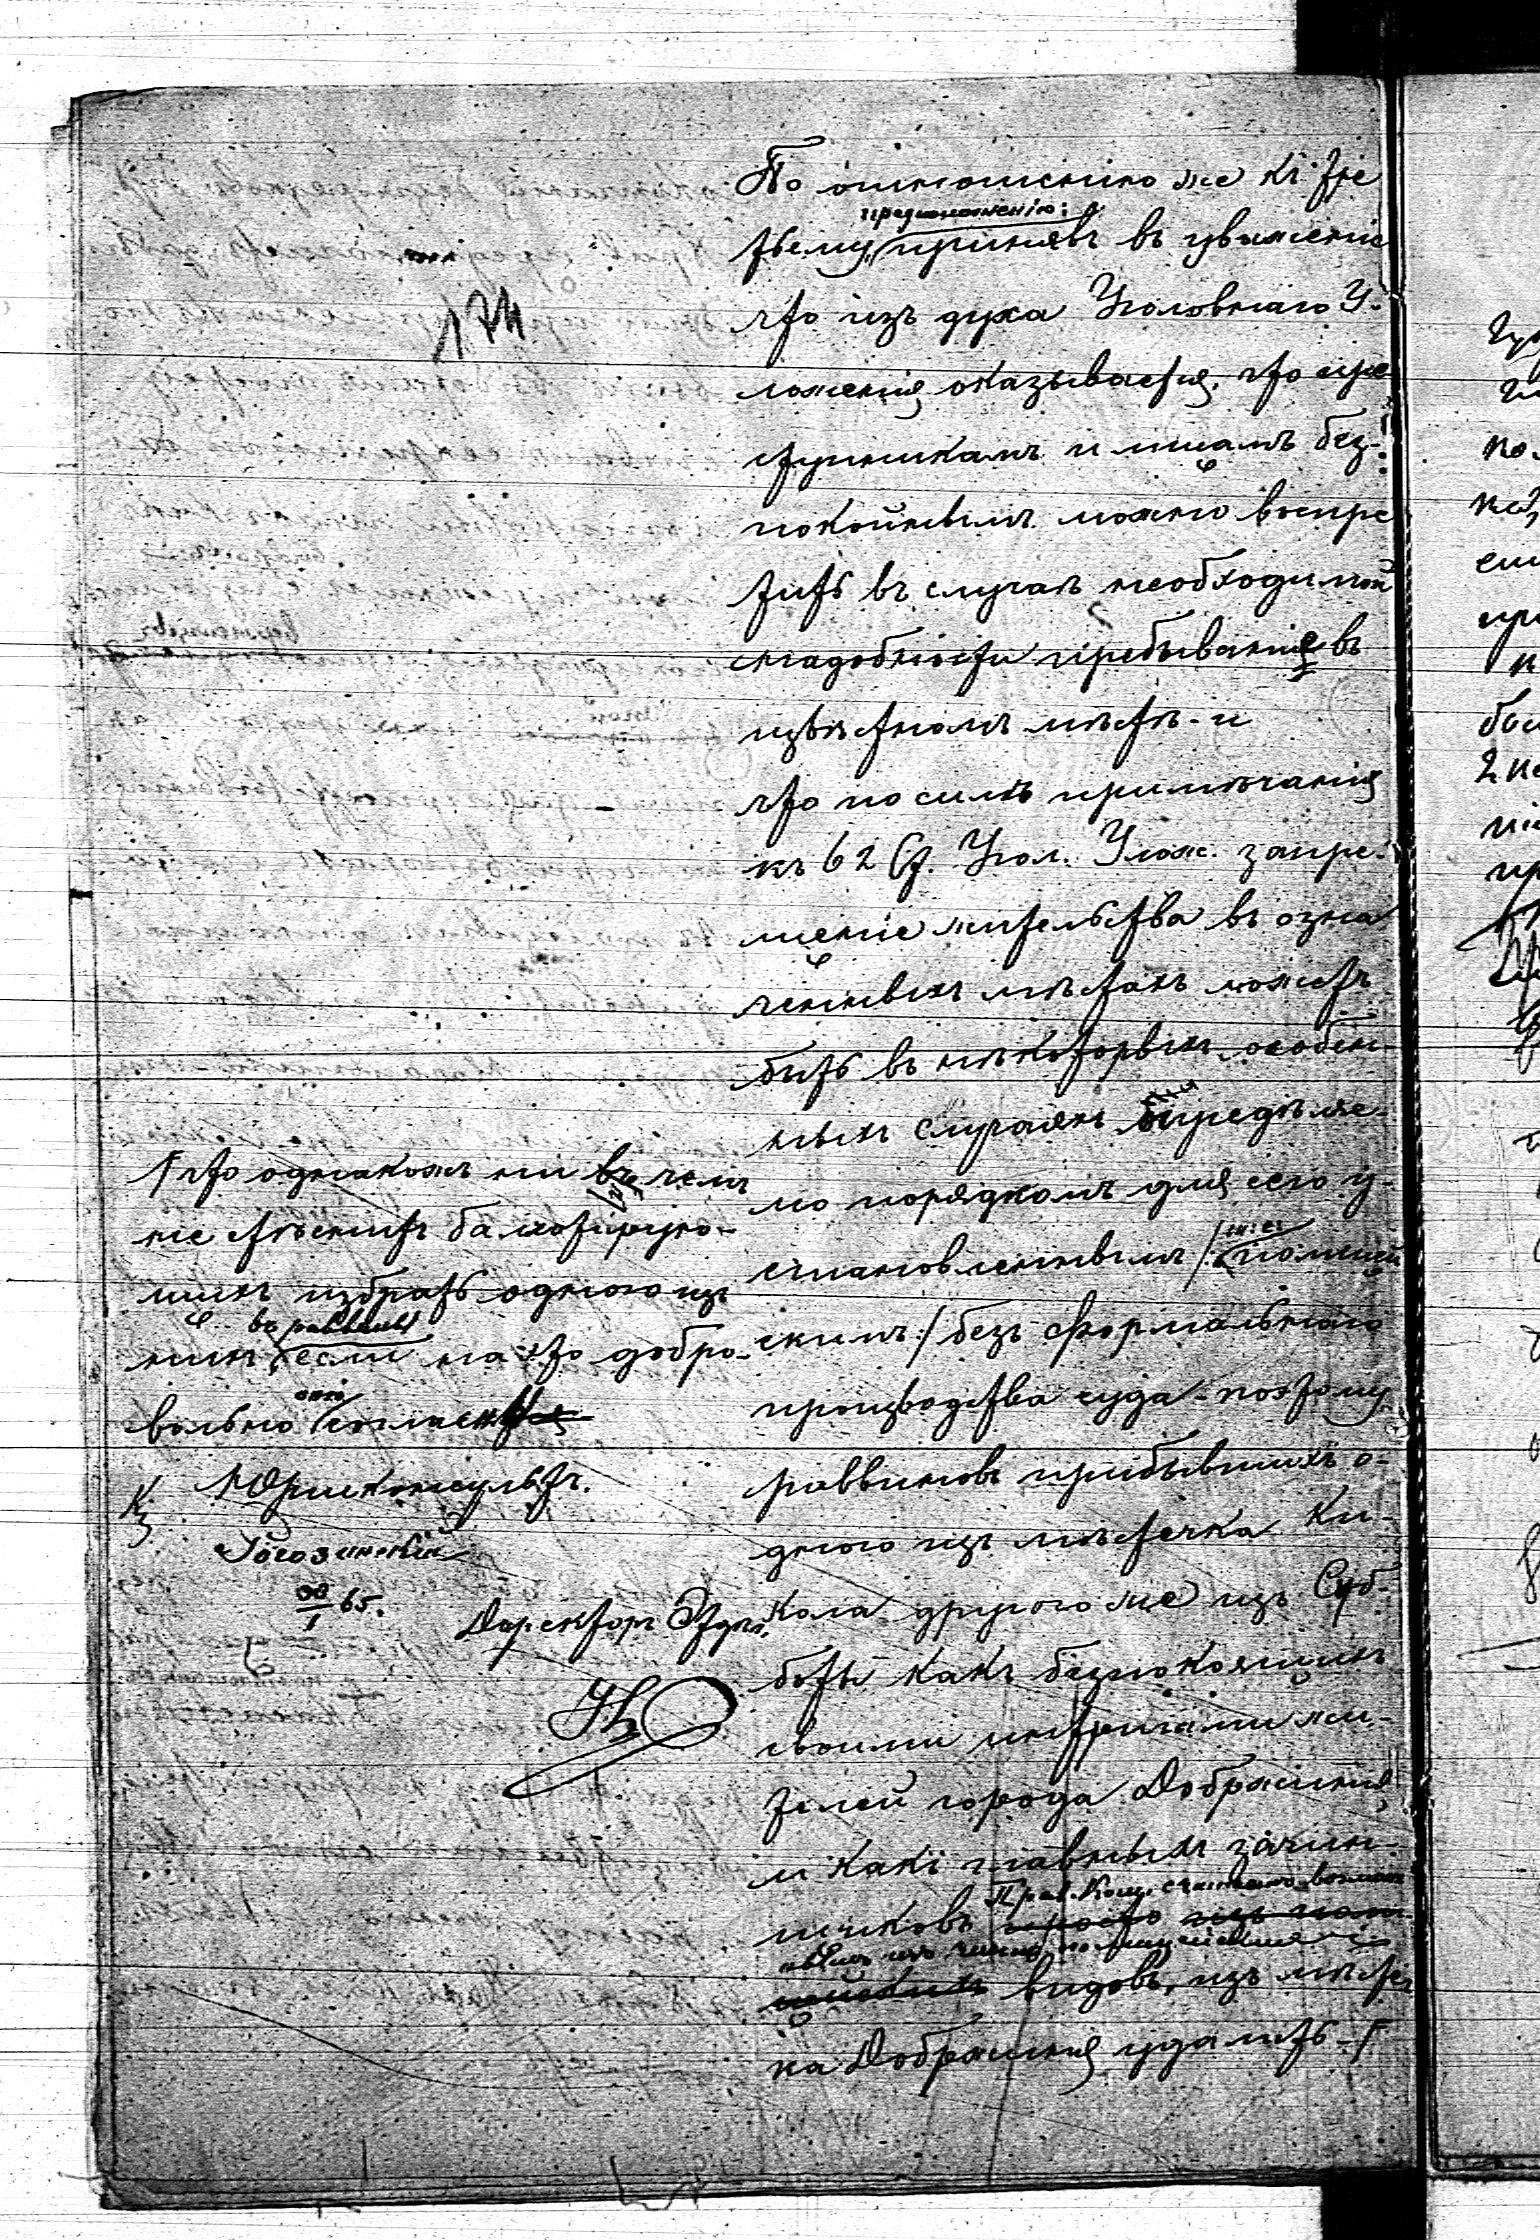 174
По отношенію же къ тре
предположенію:
тьему, принявъ въ уваженіе
что изъ духа Уголовнаго У-
ложенія оказывается, что пре
ступникамъ и лицамъ без-
покойнымъ можно воспре
тить въ случаѣ необходимой
надобности пребываніе въ
извѣстномъ мѣстѣ - и
что по силѣ примѣчанія
къ 62 Ст. Угол. Улож. запре-
щеніе жительства въ озна
ченныхъ мѣстахъ можетъ
быть въ нѣкоторыхъ особен-
ныхъ случаяхъ опредѣляе-
мо порядкомъ для сего у-
становленнымъ /: полицей
скимъ :/ безъ формальнаго
производства суда - поэтому
раввиновъ прибывшихъ о-
дного изъ мѣстечка Ки-
кола другого же изъ Суб-
боты какъ безпокоящихъ
своими интригами жи-
телей города Добржиня
и какъ главныхъ зачин-
Прав. Ком. считаетъ возмож
щиковъ просто изъ поли
нымъ изъ чисто полицейскихъ
цейскихъ видовъ, изъ мѣстеч
ка Добржиня удалить - Г
Г что однакожъ ни въ чемъ
не стѣснитъ баллотирую-
щихъ избрать одного изъ
въ раввины
нихъ, если на это добро-
они
вольно согласятся
Юрисконсультъ.
Рогозинскій
65.
Директоръ Отдѣл.